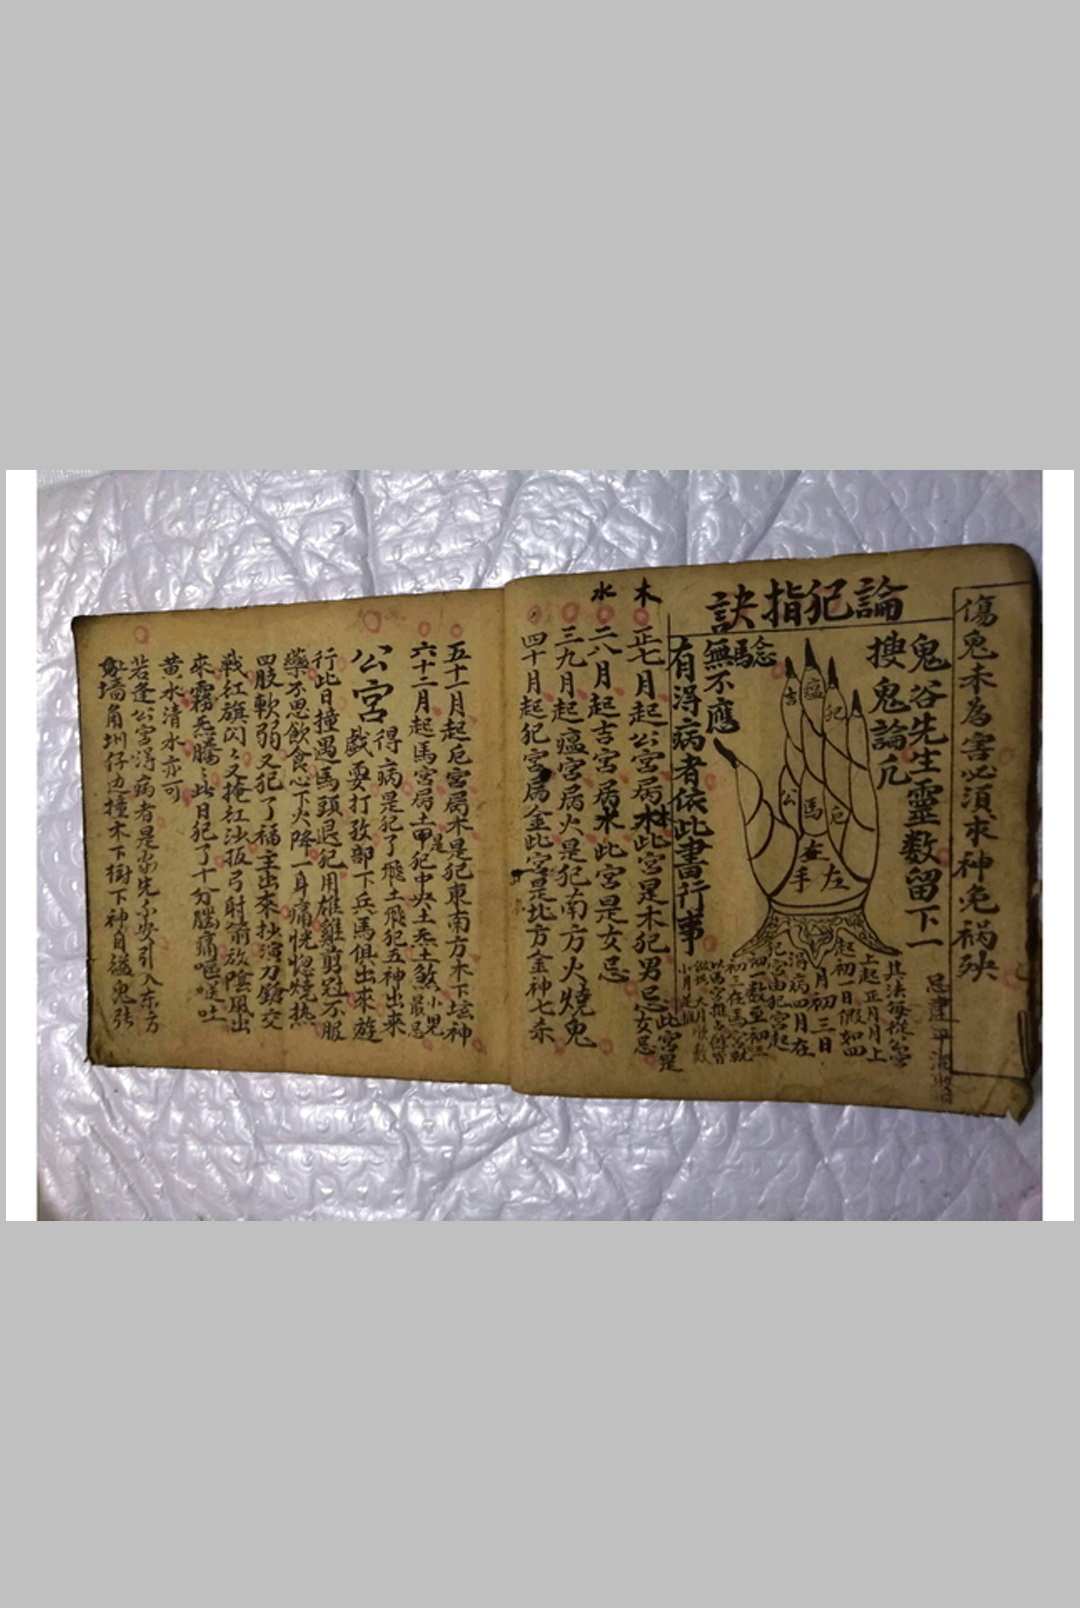 傷鬼未為害必須求神免祸殃
論犯指訣
鬼谷先生靈数留下一
搜鬼論
無不應
有淂病者依此書行事
吉
瘟
犯
公
馬
厄
左
手
其法每從公宮
上起正月月上
起初一日假如四
月初三日
淂病四月在
犯宮由犯宮起
初一数至初三
木
正七月起公宮病此宮是木犯男忌女忌
此宮是
水
二八月起吉宮病水此宮是女忌
三九月起瘟宮病火是犯南方火燒鬼
四十月起犯宮屬金此宮是北方金神七杀
五十一月起厄宮屬木是犯東南方木下坛神
六十二月起馬宮屬土是犯中央土土煞小児最忌
公宮
得病是犯了飛土飛犯五神出来
戲耍打致部下兵馬俱出來遊
行此日撞遇馬頭退犯用雄雞剪冠不服
藥不思飲食心下火降一身痛恍惚燒热
四肢軟弱又犯了福主出來抄演刀鎗交
戰紅旗閃々又掩紅沙扳弓射箭放陰風出
來霧騰々此日犯了十分腦痛嘔逆吐
黄水清水亦可
若逢公宮淂病者是引入东方
墻角圳仔边撞木下樹下神自縊鬼張